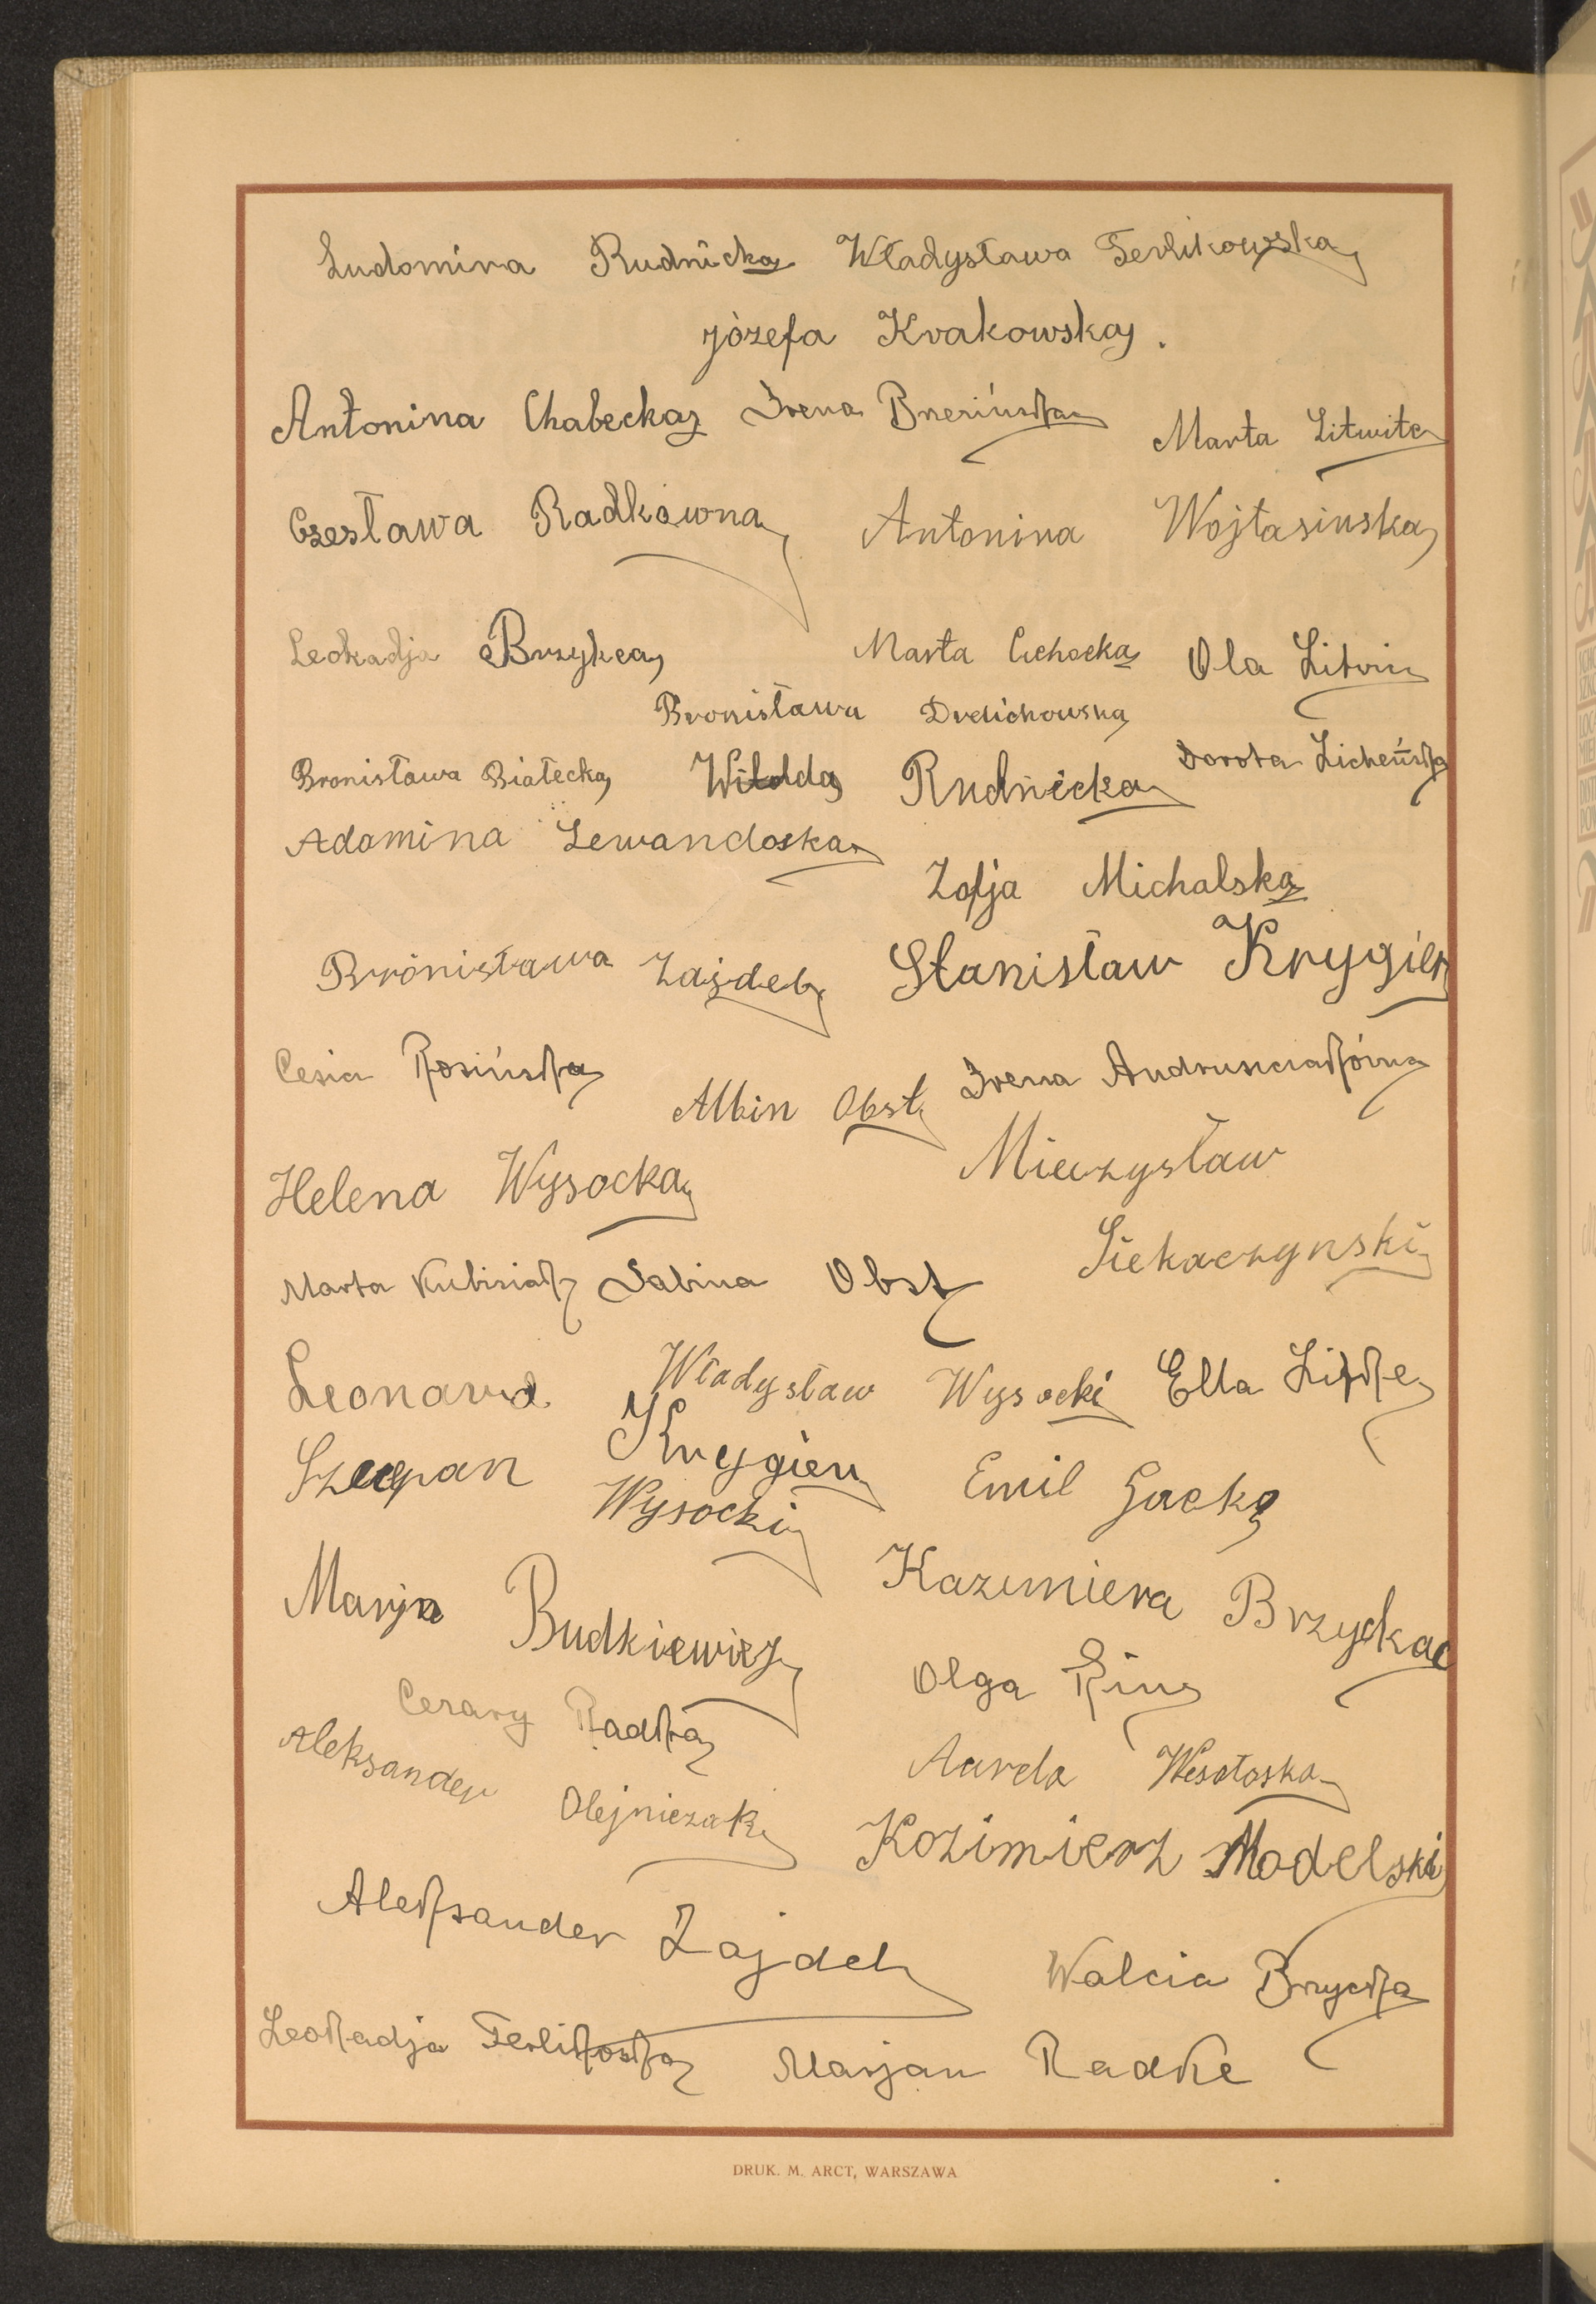 Ludomira Rudnicka Władysława Terlikowska
Józefa Krakowska.
Antonina Chabecka Irena Brzezińska Marta Litwitz
Czesława Radkówna Antonina Wojtasinska
Leokadja Brzykca Marta Cichocka Ola Litwin
Bronisława Drelichowska
Bronisława Białecka Wilda Rudnicka Dorota Licheńska
Adamina Lewandoska
Zofja Michalska
Bronisława Zajdel Stanisław Krygier
Cesia Rosińska Albin Obst Irena Andrusciakówna
Helena Wysocka Mieczysław
Marta Kubisiak Sabina Obst Siekaczynski
Leonard Władysław Wysocki Ella Litke
Szczepan Krygier Emil Gacke
Wysocki
Marja Budkiewicz Kazimiera Brzycka
Cezary Radka Olga Rin
Aleksander Olejniczak Aurela Wesołoska
Kozimierz Modelski
Aleksander Zajdel Walcia Brzycka
Leokadja Terlikoska Marjan Radke
DRUK. M. ARCT, WARSZAWA